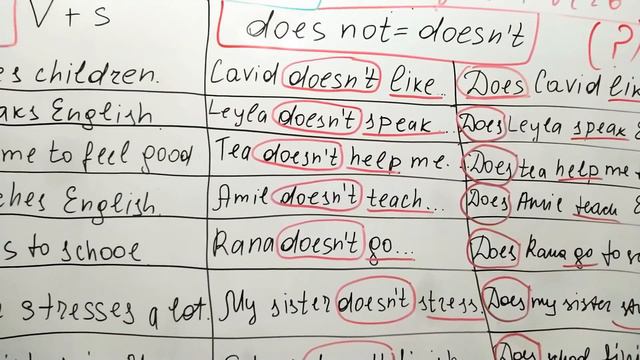 V + s
does not = doesn't
(?)
es children.
Cavid doesn't like...
Does Cavid lik
aks English
Leyla doesn't speak...
Does Leyla speak E
me to feel good
Tea doesn't help me.
Does tea help me
ches English
Amil doesn't teach...
Does Amil teach E
s to school
Rana doesn't go...
Does Rana go to s
stresses a lot.
My sister doesn't stress.
Does my sister st